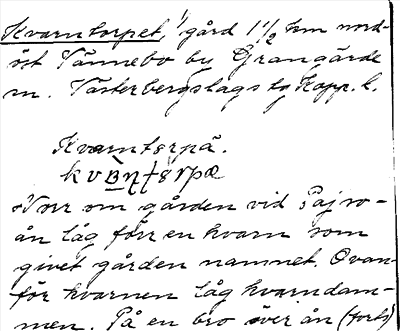 Kvarntorpet, 1/ gård 1 1/2 km nord-
öst Tännebo by Grangärde
sn. Västerbergslags tg Kopp. l.
Kvarntorpä.
Norr om gården vid Pajso-
ån låg förr en kvarn som
givet gården namnet. Ovan-
för kvarnen låg kvarndam-
men. På en bro över ån (forts)